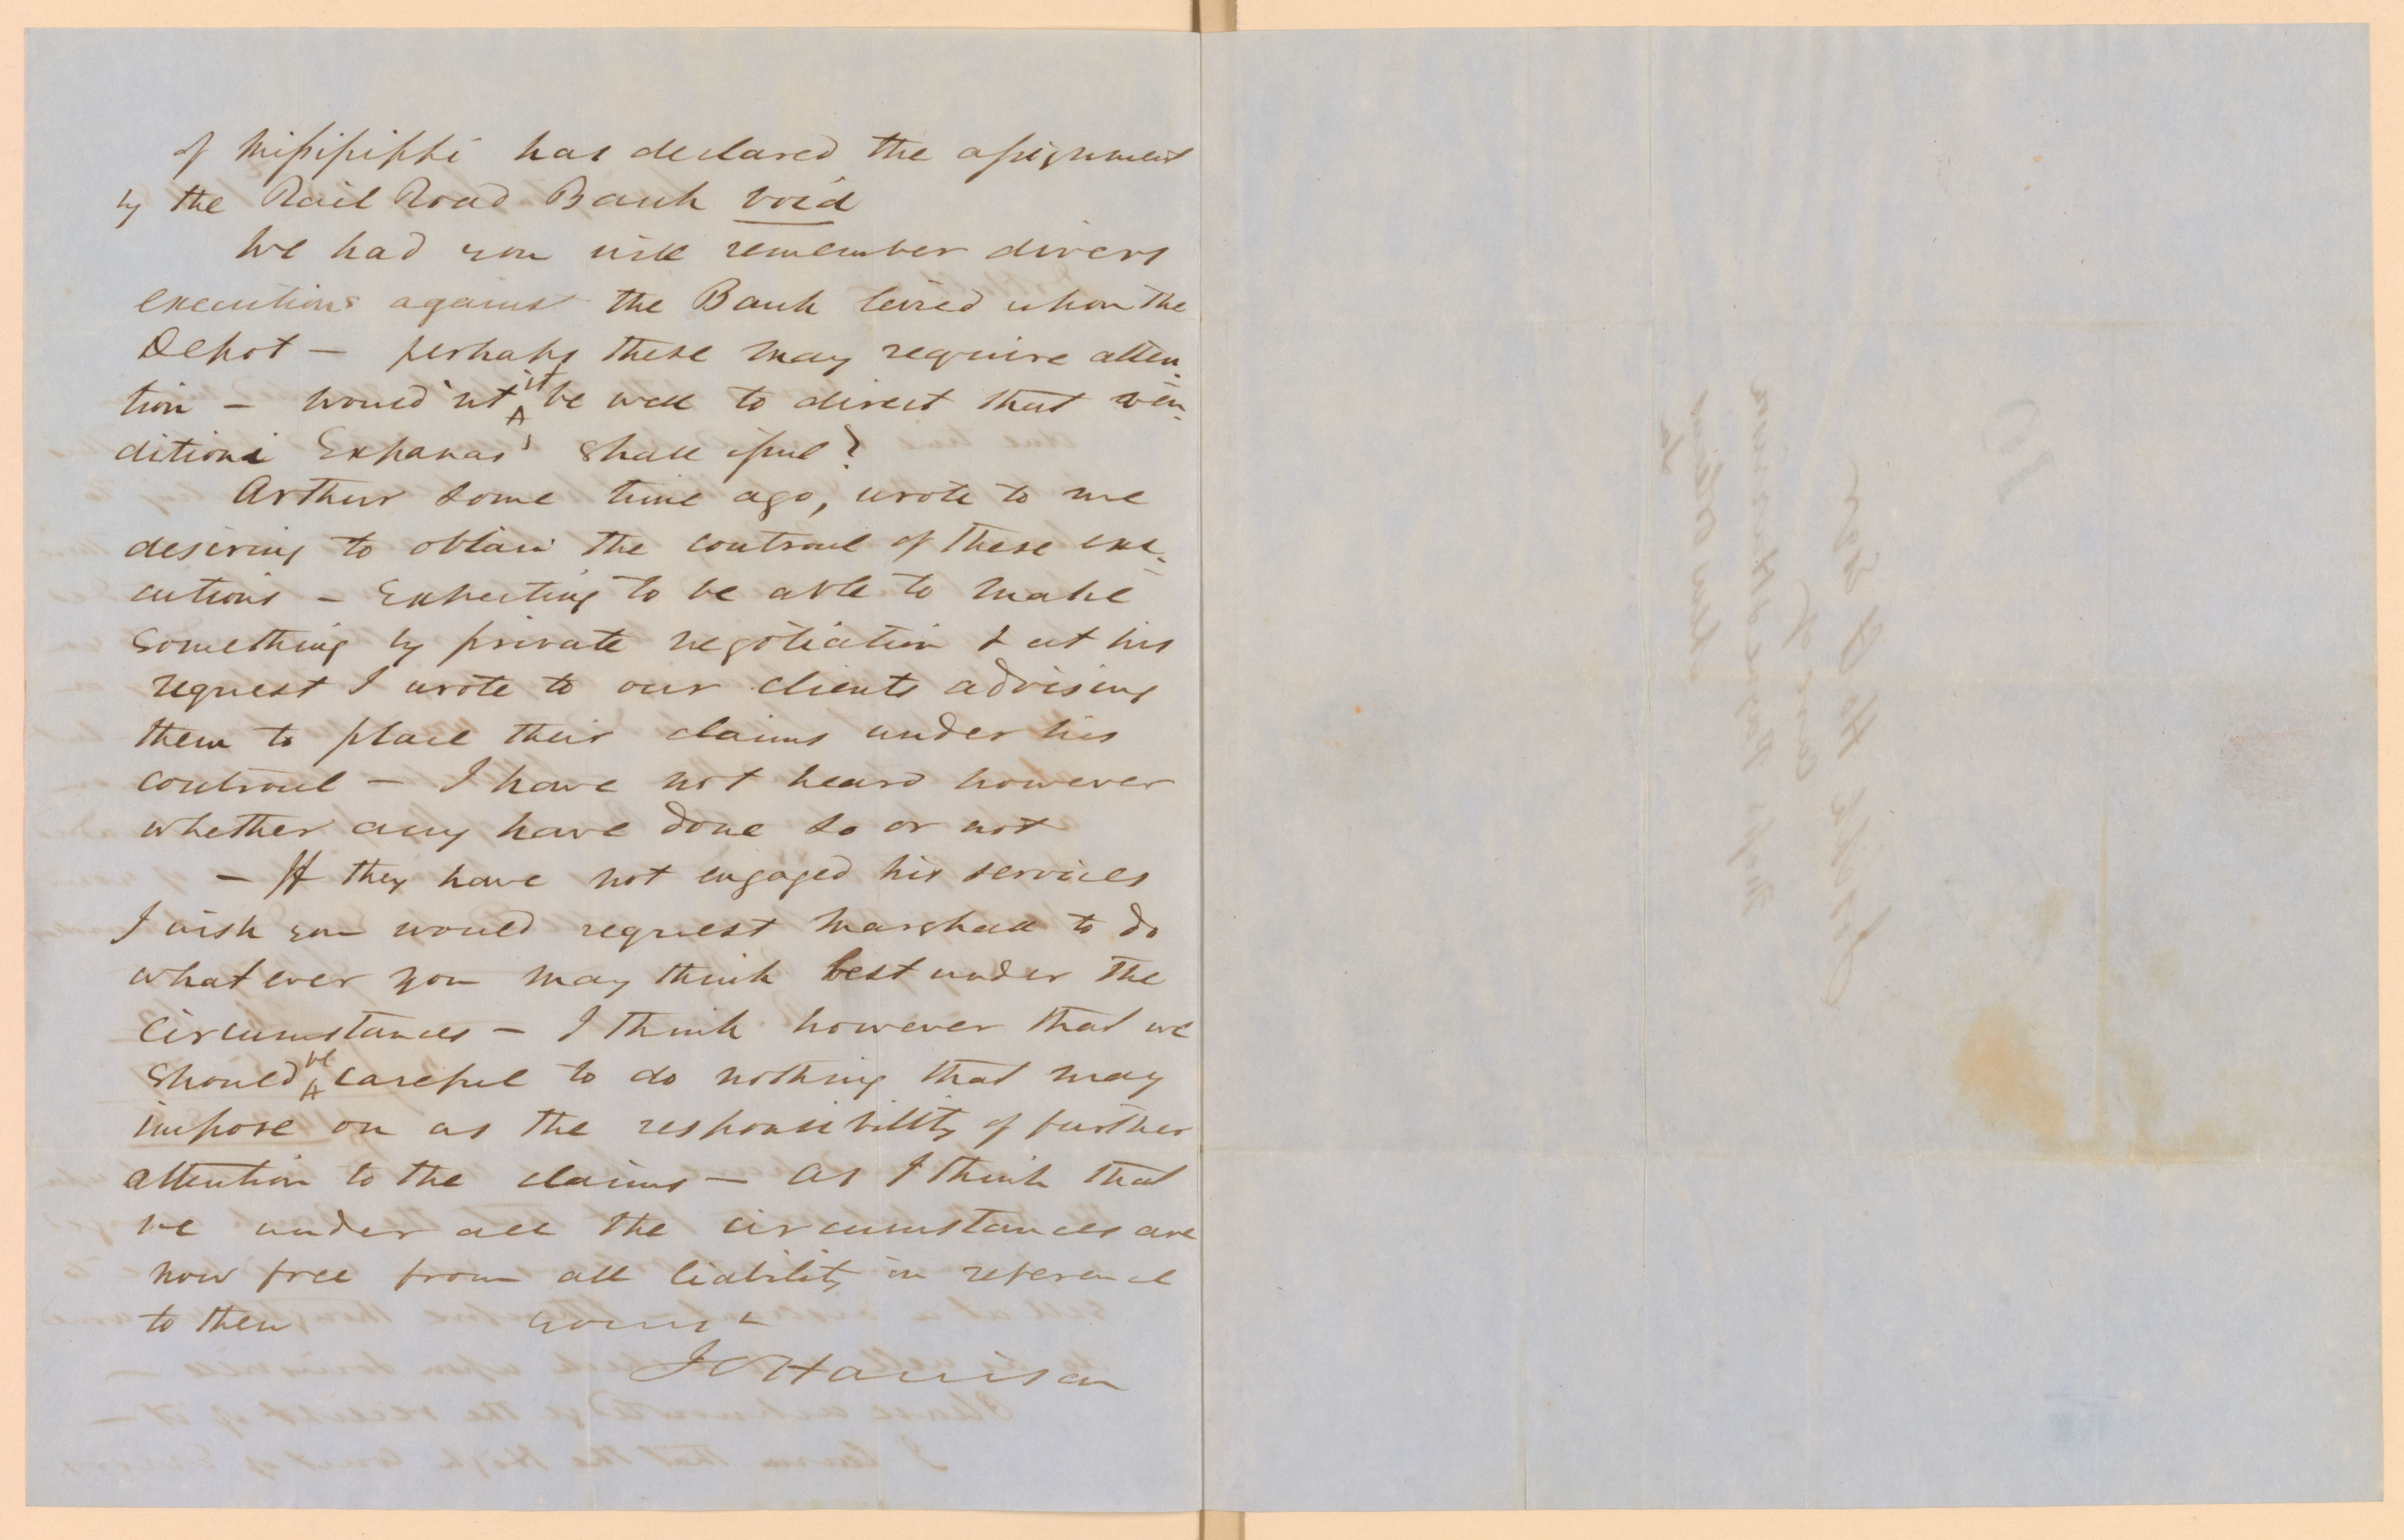 of Missisippi has declared the assignment
by the Rail Road Bank void
We had you will remember divers
executions against the Bank levied upon the
Depot — perhaps these may require atten-
tion — would'nt it be well to direct that ven-
ditioni Exponas' shall issue?
Arthur some time ago, wrote to me
desiring to obtain the controul of these exe-
cutions — Expecting to be able to make
something by private negotiation & at his
request I wrote to our clients advising
them to place their claims under his
controul — I have not heard however
whether any have done so or not
— If they have not engaged his services
I wish you would request Marshall to do
what ever you may think best under the
circumstances — I think however that we
should be careful to do nothing that may
impose on us the responsibility of further
attention to the claims — as I think that
we under all the circumstances are
now free from all liability in reference
to them
J C Harrison